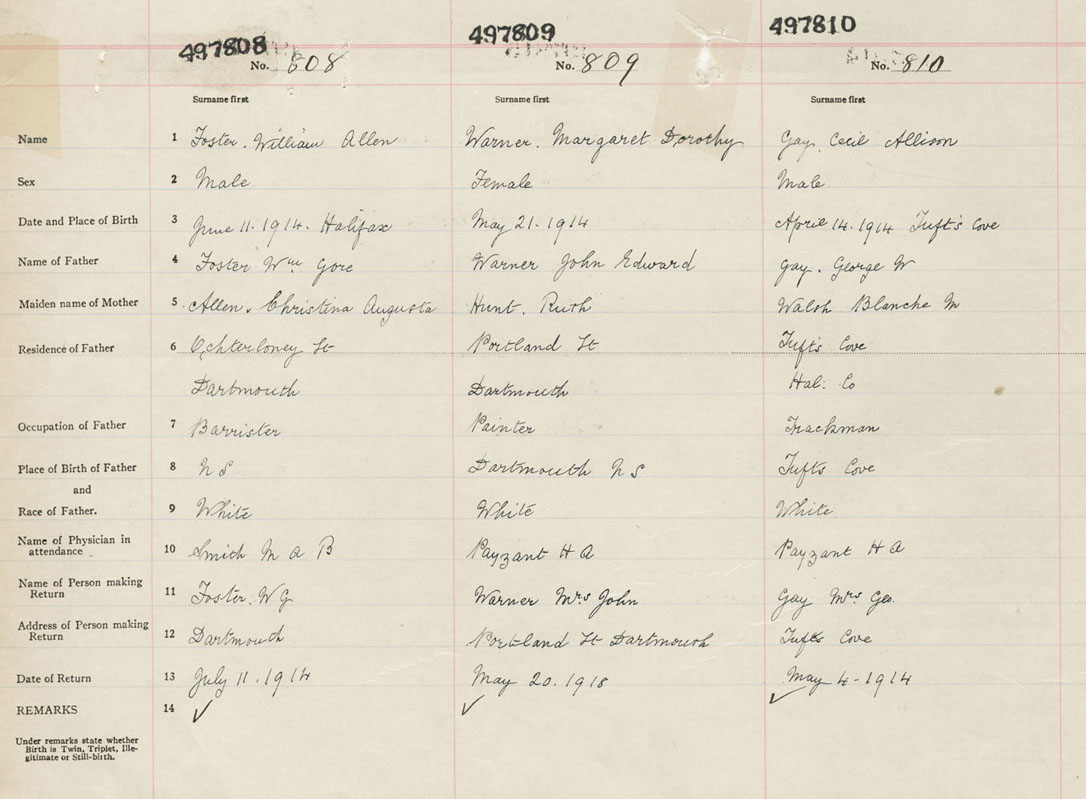 497808 497809 497810
No. 808 No. 809 No. 810
Surname first Surname first Surname first
Name 1 Foster. William Allen Warner. Margaret Dorothy Gay. Cecil Allison
Sex 2 Male Female Male
Date and Place of Birth 3 June 11. 1914. Halifax May 21. 1914 April 14. 1914 Tuft's Cove
Name of Father 4 Foster Wm Gore Warner John Edward Gay. George W
Maiden name of Mother 5 Allen. Christina Augusta Hunt. Ruth Walsh Blanche M
Residence of Father 6 Ochterloney St Portland St Tufts Cove
Dartmouth Dartmouth Hal: Co
Occupation of Father 7 Barrister Painter Trackman
Place of Birth of Father 8 N S Dartmouth N S Tufts Cove
and
Race of Father. 9 White White White
Name of Physician in
attendance 10 Smith M A B Payzant H A Payzant H A
Name of Person making
Return 11 Foster. W G Warner Mrs John Gay Mrs Geo.
Address of Person making
Return 12 Dartmouth Portland St Dartmouth Tufts Cove
Date of Return 13 July 11. 1914 May 20. 1918 May 4-1914
REMARKS 14 ✓ ✓ ✓
Under remarks state whether
Birth is Twin, Triplet, Ille-
gitimate or Still-birth.